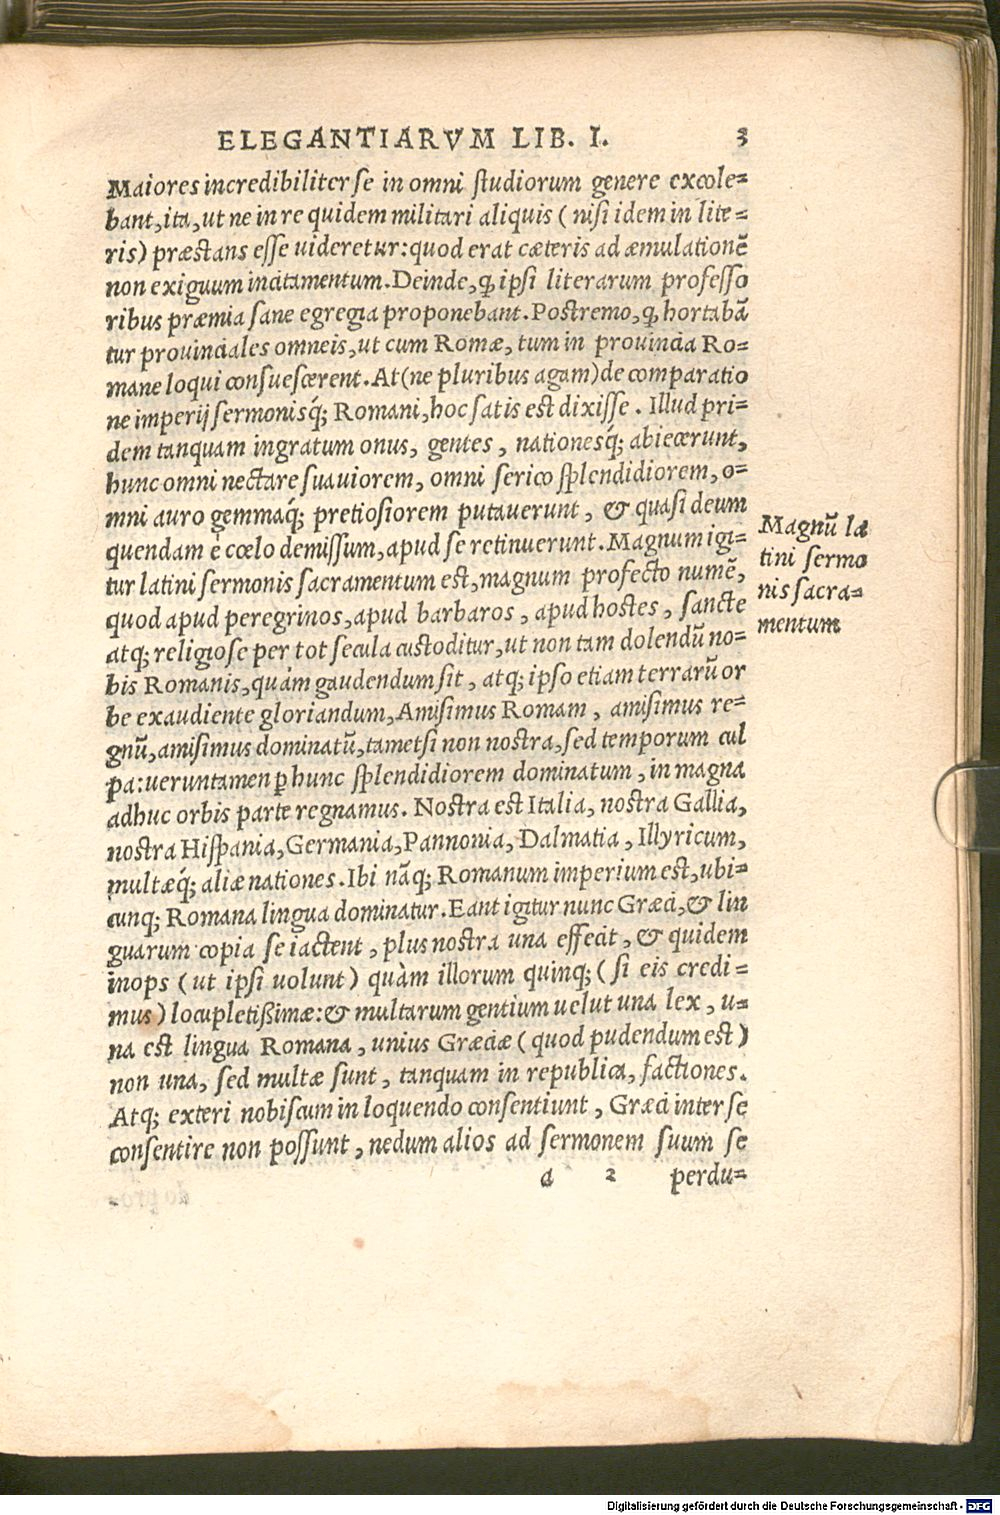 ELEGANTIARVM LIB. I. 3
Maiores incredibiliter se in omni studiorum genere excole=
bant, ita, ut ne in re quidem militari aliquis ( nisi idem in lite=
ris) præstans esse uideretur: quod erat cæteris ad æmulationẽ
non exiguum incitamentum. Deinde, ꝙ ipsi literarum professo
ribus præmia sane egregia proponebant. Postremo, ꝙ hortabã
tur prouinciales omneis, ut cum Romæ, tum in prouincia Ro=
mane loqui consuescerent. At (ne pluribus agam) de comparatio
ne imperij sermonisq́; Romani, hoc satis est dixisse. Illud pri=
dem tanquam ingratum onus, gentes, nationesq́; abiecerunt,
hunc omni nectare suauiorem, omni serico splendidiorem, o=
mni auro gemmaq́; pretiosiorem putauerunt, & quasi deum
quendam è cœlo demissum, apud se retinuerunt. Magnum igi=
tur latini sermonis sacramentum est, magnum profecto numẽ,
quod apud peregrinos, apud barbaros, apud hostes, sancte
atq; religiose per tot secula custoditur, ut non tam dolendũ no=
bis Romanis, quàm gaudendum sit, atq; ipso etiam terrarũ or
be exaudiente gloriandum, Amisimus Romam, amisimus re=
gnũ, amisimus dominatũ, tametsi non nostra, sed temporum cul
pa: ueruntamen ꝑ hunc splendidiorem dominatum, in magna
adhuc orbis parte regnamus. Nostra est Italia, nostra Gallia,
nostra Hispania, Germania, Pannonia, Dalmatia, Illyricum,
multæq́; aliæ nationes. Ibi nãq; Romanum imperium est, ubi=
cunq; Romana lingua dominatur. Eant igitur nunc Græci, & lin
guarum copia se iactent, plus nostra una effecit, & quidem
inops (ut ipsi uolunt) quàm illorum quinq; ( si eis credi=
mus) locupletißimæ: & multarum gentium uelut una lex, u=
na est lingua Romana, unius Græciæ (quod pudendum est)
non una, sed multæ sunt, tanquam in republica, factiones.
Atq; exteri nobiscum in loquendo consentiunt, Græci inter se
consentire non possunt, nedum alios ad sermonem suum se
a 2 perdu=
Magnũ la
tini sermo
nis sacra=
mentum
Digitalisierung gefördert durch die Deutsche Forschungsgemeinschaft - DFG